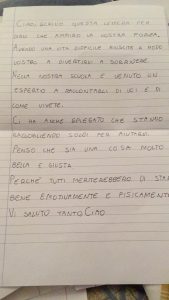 CIAO, SCRIVO QUESTA LETTERA PER
DIRVI CHE AMMIRO LA VOSTRA FORZA.
AVENDO UNA VITA DIFFICILE RIUSCITE A MODO
VOSTRO A DIVERTIRVI A SORRIDERE.
NELLA NOSTRA SCUOLA È VENUTO UN
ESPERTO A RACCONTARCI DI VOI E DI
COME VIVETE.
CI HA ANCHE SPIEGATO CHE STANNO
RACCOGLIENDO SOLDI PER AIUTARVI.
PENSO CHE SIA UNA COSA MOLTO
BELLA E GIUSTA
PERCHÈ TUTTI MERITEREBBERO DI STA
BENE EMOTIVAMENTE E FISICAMENT
VI SALUTO TANTO CIAO